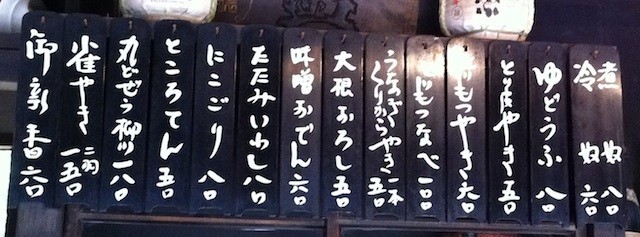 煮奴 八〇
冷奴 六〇
ゆどうふ 八〇
とり皮やき 五〇
もつやき 六〇
もつなべ 一〇〇
うなぎくりからやき 一本 五〇
大根おろし 五〇
味噌おでん 六〇
たたみいわし 八〇
にこごり 八〇
ところてん 五〇
丸どぜう柳川 一八〇
雀やき 二羽 一五〇
御新香 六〇